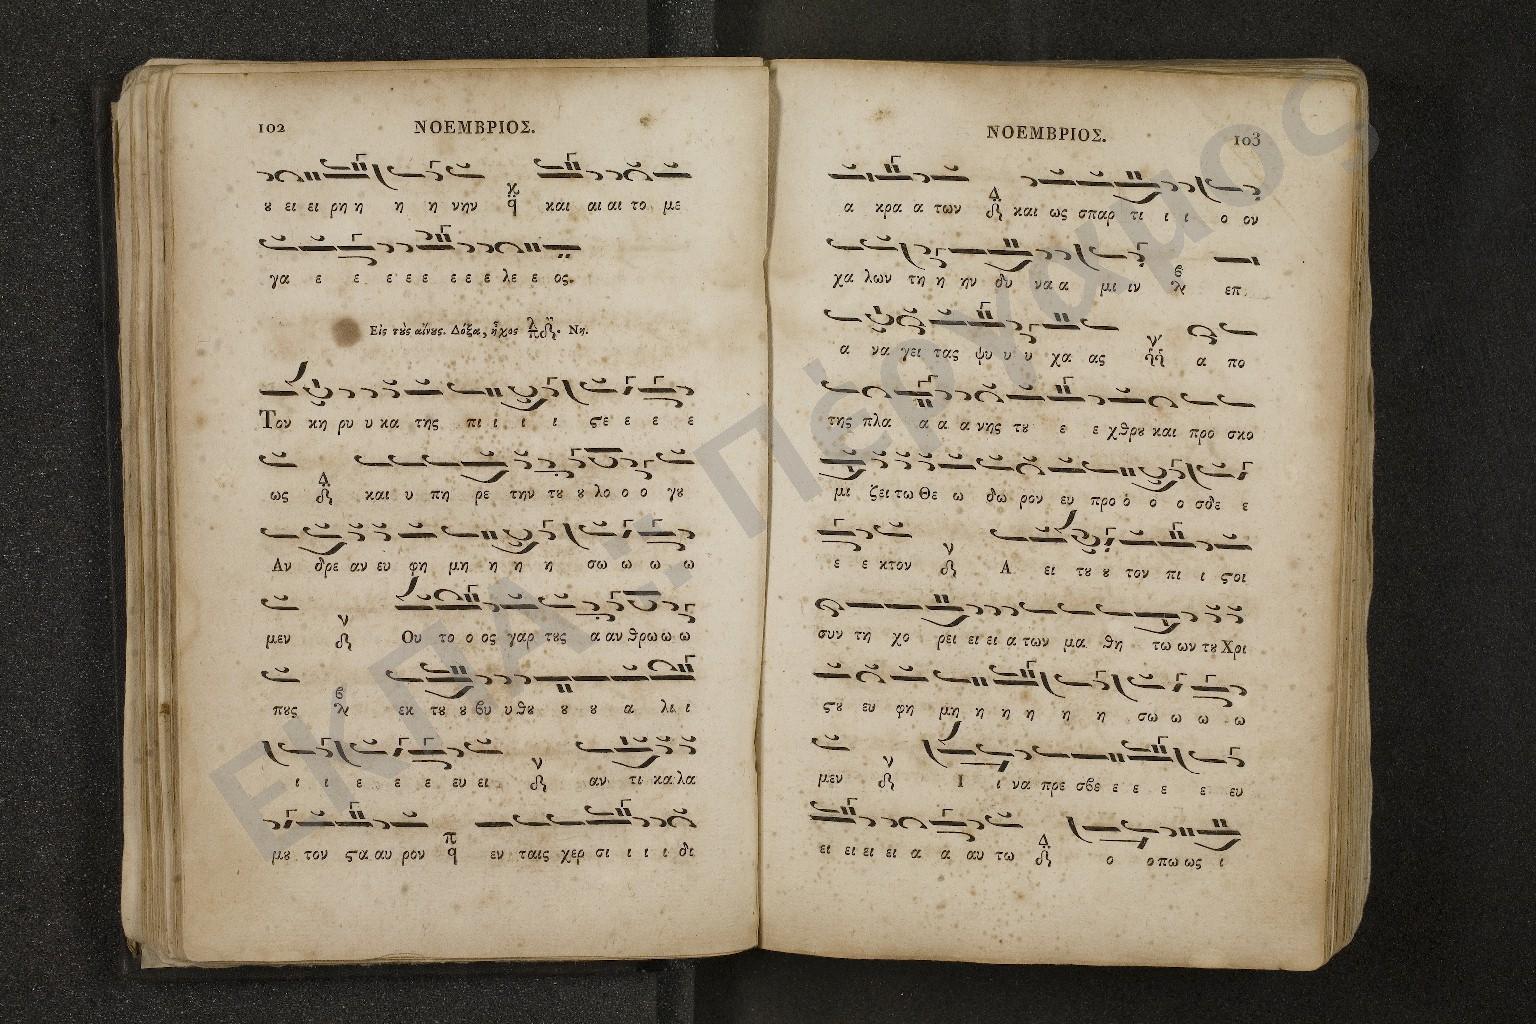 102 ΝΟΕΜΒΡΙΟΣ.
ȣ ει ει ρη η η η νην και αι αι το με
γα ε ε ε ε ε ε ε ε λε ε ος.
Εἰς τȣ̀ς αἴνȣς. Δόξα, ἦχος Νη.
Τον κη ρυ υ κα της πι ι ι ι ϛε ε ε ε
ως Δ και υ πη ρε την τȣ ȣ λο ο ο γȣ
Αν δρε αν ευ φη μη η η η σω ω ω ω
μεν ν Ου το ο ος γαρ τȣς α αν θρω ω ω
πȣς ϐ εκ τȣ ȣ ϐυ υ θȣ ȣ ȣ α λι ι
ι ι ε ε ε ε ευ ει ν αν τι κα λα
μȣ τον ϛα αυ ρον π εν ταις χερ σι ι ι ι δι
ΝΟΕΜΒΡΙΟΣ. 103
α κρα α των Δ και ως σπαρ τι ι ι ο ον
χα λων τη η ην δυ να α μι ιν ϐ επ
α να γει τας ψυ υ υ χα ας ν α πο
της πλα α α α νης τȣ ε ε χθρȣ και προ σκο
μι ζει τω Θε ω δω ρον ευ προ ὁ ο ο σδε ε
ε ε κτον ν Α ει τȣ ȣ τον πι ι ϛοι
συν τη χο ρει ει ει α των μα θη τω ων τȣ Χρι
ϛȣ ευ φη μη η η η η η σω ω ω ω
μεν ν Ι ι να πρε σϐε ε ε ε ε ευ
ει ει ει ει α α αυ τω Δ ο ο πω ως ι
ΕΚΠΑ: Πέργαμος